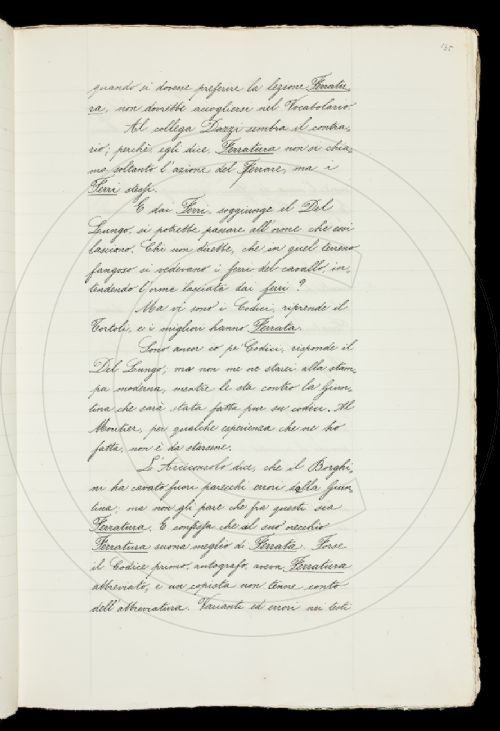 135
quando si dovesse preferire la lezione Ferratu-
ra, non dovrebbe accogliersi nel Vocabolario.
Al collega Dazzi sembra il contra-
rio; perchè egli dice, Ferratura non si chia-
ma soltanto l'azione del Ferrare, ma i
Ferri stessi.
E dai Ferri, soggiunge il Del
Lungo, si potrebbe passare all'orme che essi
lasciano. Chi non direbbe, che in quel terreno
fangoso si vedevano i ferri del cavallo, in-
tendendo l'orme lasciate dai ferri?
Ma vi sono i Codici, riprende il
Tortoli, e i migliori hanno Ferrata.
Sono ancor io pe' Codici, risponde il
Del Lungo, ma non me ne starei alla stam-
pa moderna, mentre le sta contro la Giun-
tina che sarà stata fatta pur su codici. Al
Moutier, per qualche esperienza che ne ho
fatta, non è da starsene.
L'Arciconsolo dice, che il Borghi-
ni ha cavato fuori parecchi errori dalla Giun-
tina, ma non gli pare che fra questi sia
Ferratura. E confessa che al suo orecchio
Ferratura suona meglio di Ferrata. Forse
il Codice primo, autografo, aveva Ferratura
abbreviato, e un copista non tenne conto
dell'abbreviatura. Varianti ed errori nei testi